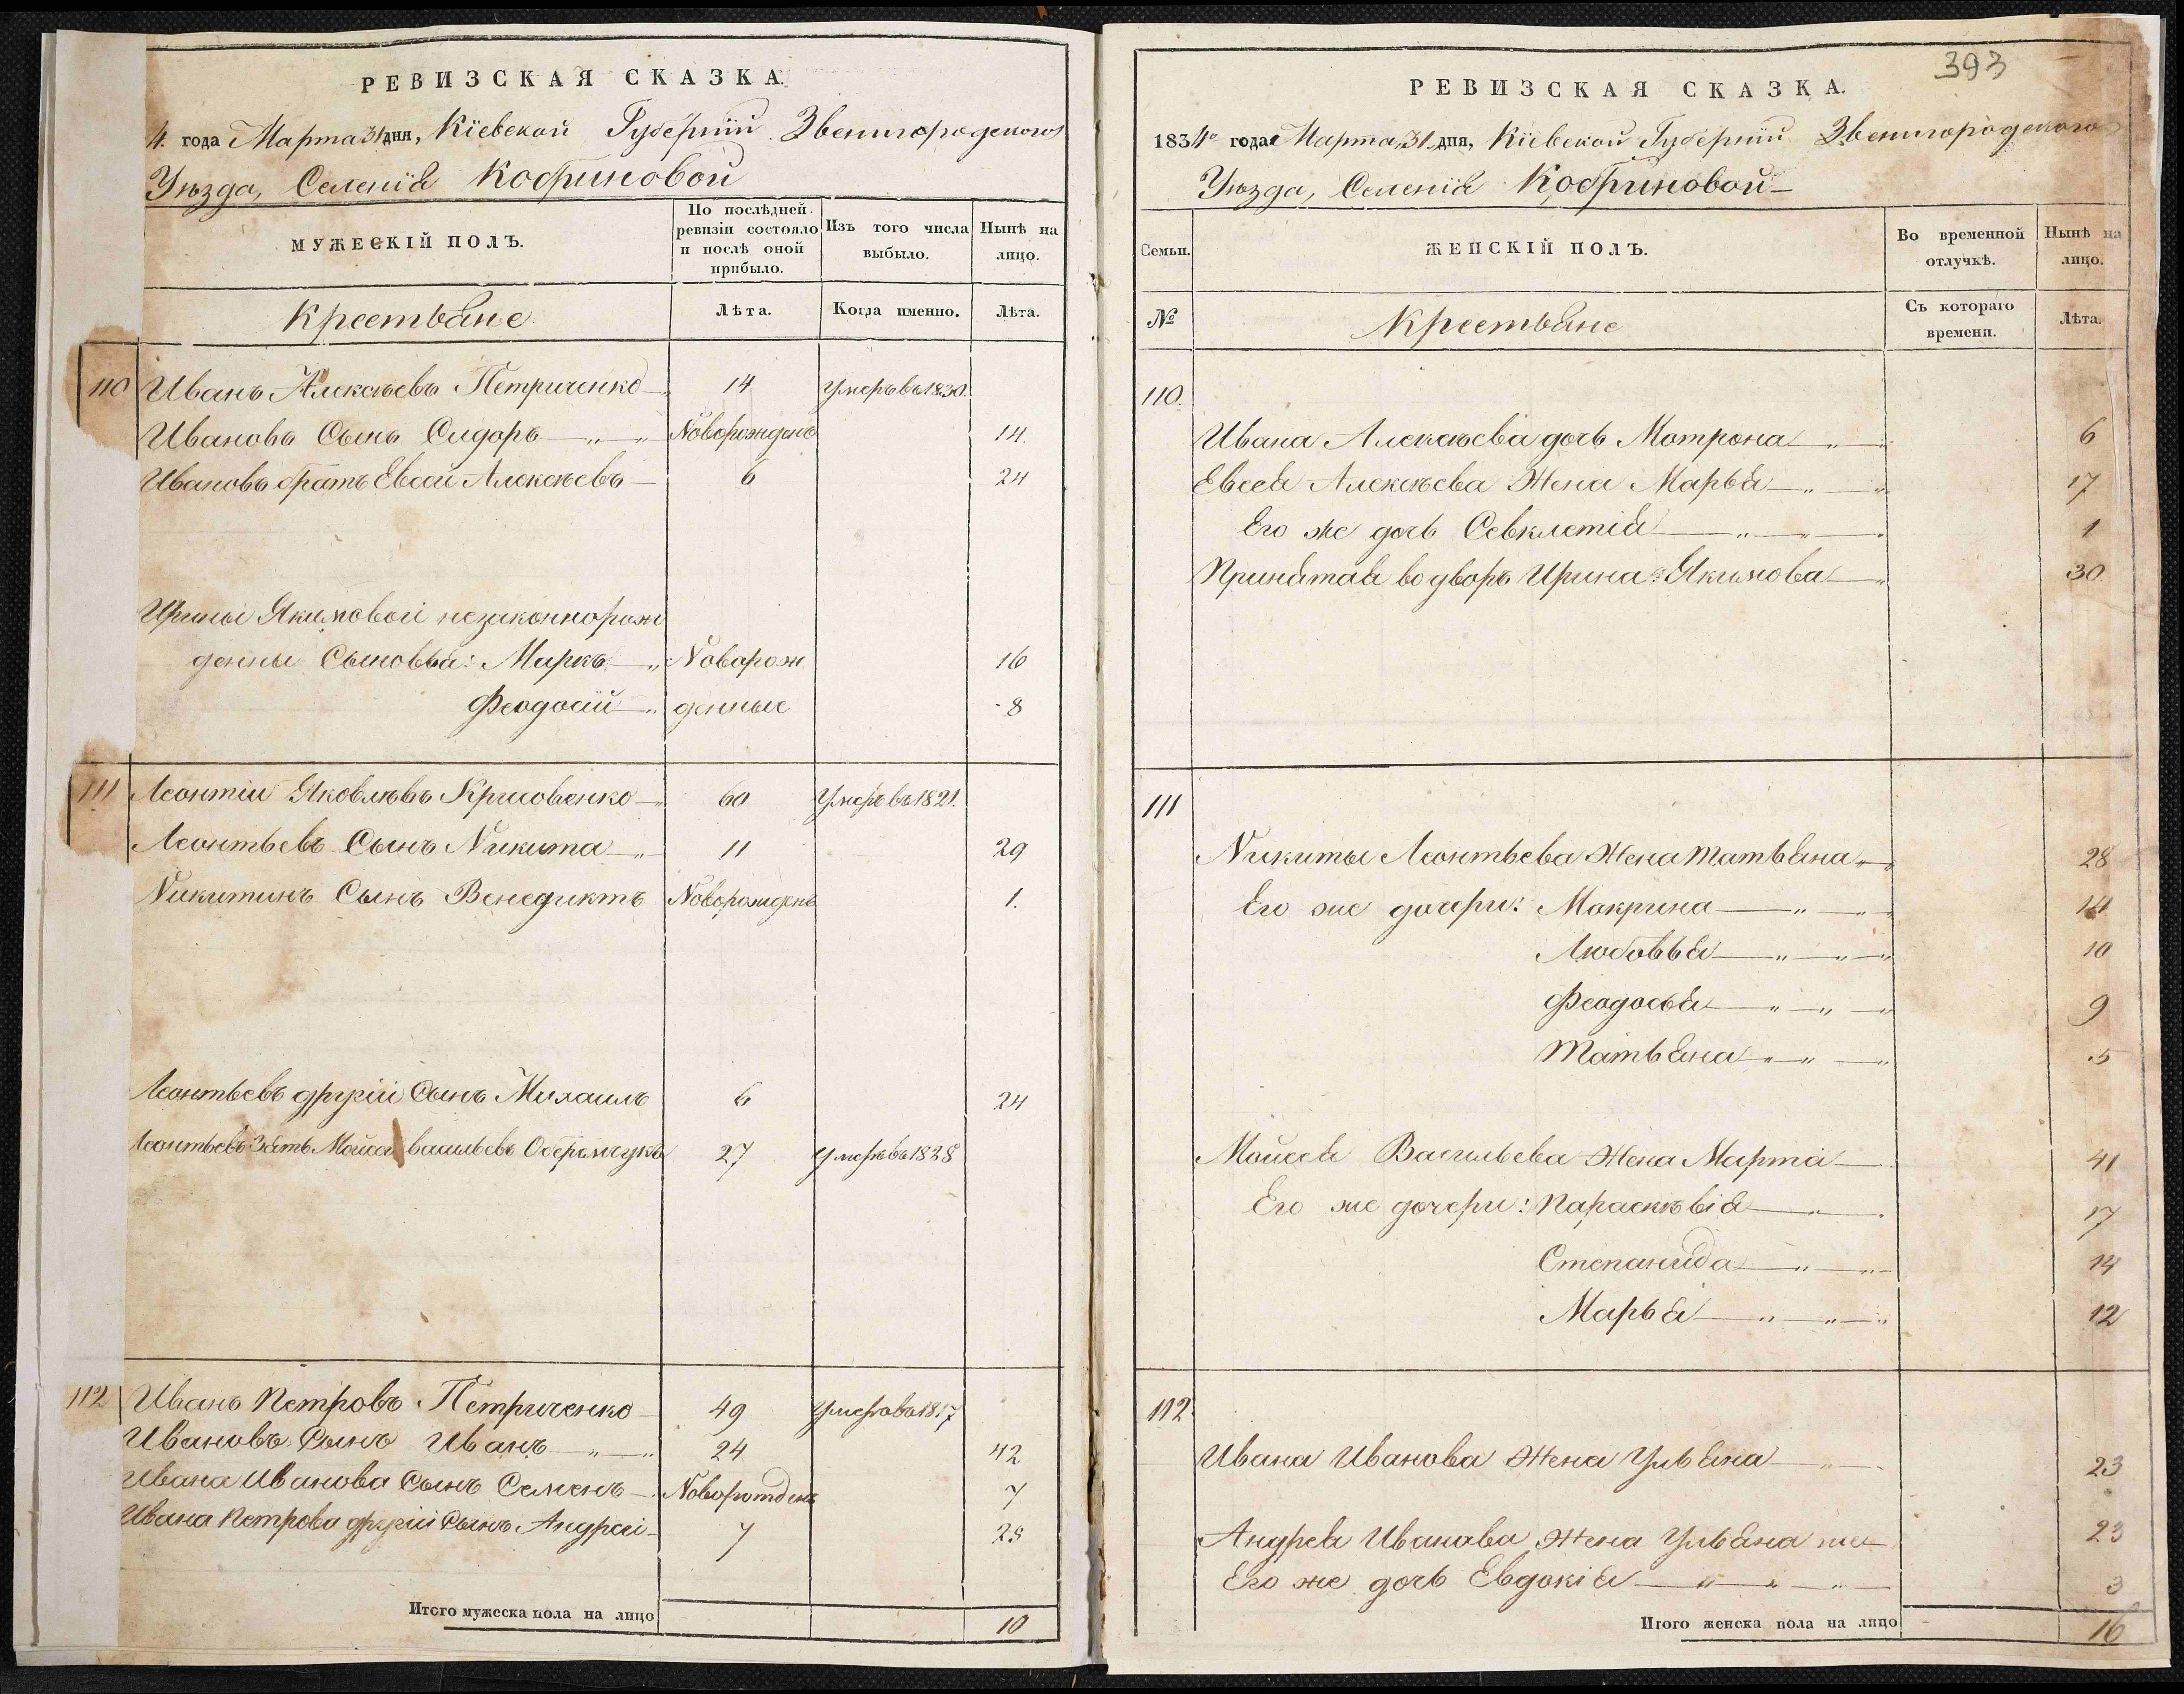 РЕВИЗСКАЯ СКАЗКА.
4. года Марта 31 дня, Кіевской Губерніи Звенигородского
Уѣзда, Селенія Кобриновой
МУЖЕСКІЙ ПОЛЪ.
По послѣдней ревизіи состояло и послѣ оной прибыло.
Изъ того числа выбыло.
Нынѣ на лицо.
Крестьяне
Лѣта.
Когда именно.
Лѣта.
110 Иванъ Алексѣевъ Петриченко 14 Умеръ въ 1830.
Ивановъ Сынъ Сидоръ Новорожденъ 14.
Ивановъ братъ Евсей Алексѣевъ 6 24
Ирины Якимовой незаконнорож
денны Сыновья: Маркъ Новорож 16
Феодосій денные 8
111 Леонтій Яковлѣвъ Крисовенко 60 Умеръ въ 1821.
Леонтьевъ Сынъ Никита 11 29
Никитинъ Сынъ Венедиктъ Новорожденъ 1.
Леонтьевъ другій Сынъ Михаилъ 6 24
Леонтьевъ Зять Мойсей Васильевъ 27 Умеръ въ 1828
112 Иванъ Петровъ Петриченко 49 Умеръ въ
Ивановъ Сынъ Иванъ 24 42
Ивана Иванова Сынъ Семенъ Новорожденъ 7
Ивана Петрова другій Сынъ Андрей 7 25
Итого мужеска пола на лицо 10
393
РЕВИЗСКАЯ СКАЗКА.
1834го года Марта 31 дня, Кіевской Губерніи Звенигородского
Уѣзда, Селенія Кобриновой
Семьи.
ЖЕНСКІЙ ПОЛЪ.
Во временной отлучкѣ.
Нынѣ на лицо.
№
Крестьяне
Съ котораго времени.
Лѣта.
110.
Ивана Алексѣева дочь Мотрона 6
Евсея Алексѣева Жена Марья 17
Его же дочь Севклетія 1
Принятая во дворъ Ирина Якимова 30
111
Никиты Леонтьева Жена Татьяна 28
Его же дочери: Макрина 14
Любовья 10
Феодосья 9
Татьяна 5
Мойсея Васильева Жена Марта 41
Его же дочери: Параскѣвія 17
Степанида 14
Марья 12
112
Ивана Иванова Жена Ульяна 23
Андрея Иванова Жена Ульяна же 23
Его же дочь Евдокія 3
Итого женска пола на лицо 16